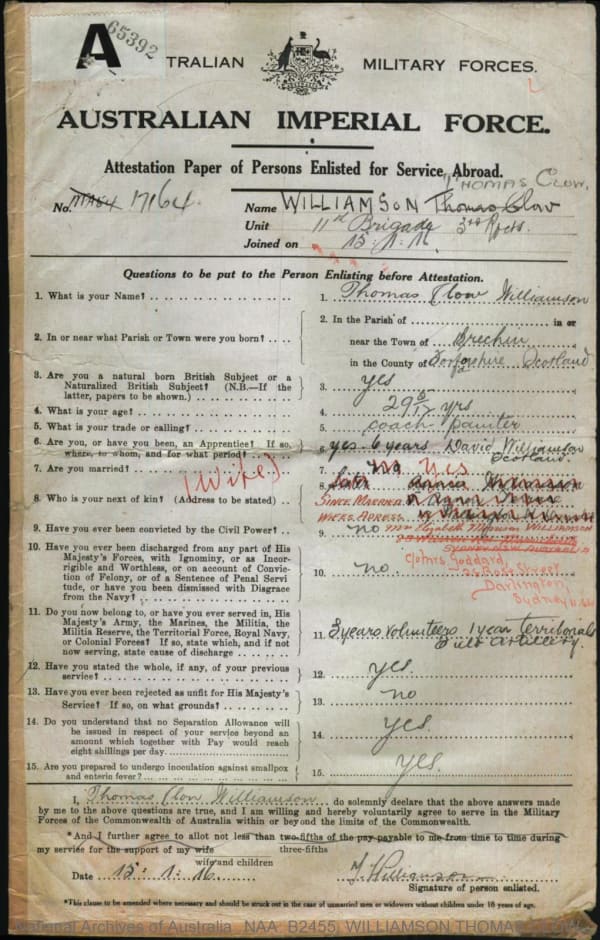 65392
A TRALIAN MILITARY FORCES.
AUSTRALIAN IMPERIAL FORCE.
Attestation Paper of Persons Enlisted for Service Abroad.
THOMAS CLOW.
No. 17164 Name WILLIAMSON Thomas Clow
Unit 11th Brigade 3rd Rfcts.
Joined on 15.1.16
Questions to be put to the Person Enlisting before Attestation.
1. What is your Name? 1. Thomas Clow Williamson
2. In or near what Parish or Town were you born? 2. In the Parish of in or
near the Town of Brechin
in the County of Forfarshire Scotland
3. Are you a natural born British Subject or a
Naturalized British Subject? (N.B.—If the
latter, papers to be shown.) 3. yes
4. What is your age? 4. 29 yrs
5. What is your trade or calling? 5. coach painter
6. Are you, or have you been, an Apprentice? If so, 6. yes. 6 years David Williamson
where, to whom, and for what period? Scotland.
7. Are you married? 7. No Yes
(Wife)
8. Who is your next of kin? (Address to be stated) 8.
SINCE MARRIED
WIFES ADDRESS
WILLIAMSON
9. Have you ever been convicted by the Civil Power? 9. no
10. Have you ever been discharged from any part of His
Majesty's Forces, with Ignominy, or as Incor-
rigible and Worthless, or on account of Convic-
tion of Felony, or of a Sentence of Penal Servi-
tude, or have you been Dismissed with Disgrace
from the Navy? 10. no.
C/o Mrs. Goddard,
Ross Street
Darlington,
Sydney
11. Do you now belong to, or have you ever served in, His
Majesty's Army, the Marines, the Militia, the
Militia Reserve, the Territorial Force, Royal Navy,
or Colonial Forces? If so, state which, and if not
now serving, state cause of discharge 11. 3 years Volunteers 1 year Territorials
Field Artillery.
12. Have you stated the whole, if any, of your previous
service? 12. yes.
13. Have you ever been rejected as unfit for His Majesty's
Service? If so, on what grounds? 13. no
14. Do you understand that no Separation Allowance will
be issued in respect of your service beyond an
amount which together with Pay would reach
eight shillings per day. 14. yes.
15. Are you prepared to undergo inoculation against smallpox
and enteric fever? 15. yes.
I, Thomas Clow Williamson do solemnly declare that the above answers made
by me to the above questions are true, and I am willing and hereby voluntarily agree to serve in the Military
Forces of the Commonwealth of Australia within or beyond the limits of the Commonwealth.
*And I further agree to allot not less than two-fifths of the pay payable to me from time to time during
my service for the support of my wife three-fifths
wife and children
Date 15.1.16 T. Williamson
Signature of person enlisted.
*This clause to be amended where necessary and should be struck out in the case of unmarried men or widowers without children under 18 years of age.
National Archives of Australia NAA: B2455, WILLIAMSON THOMAS CLOW